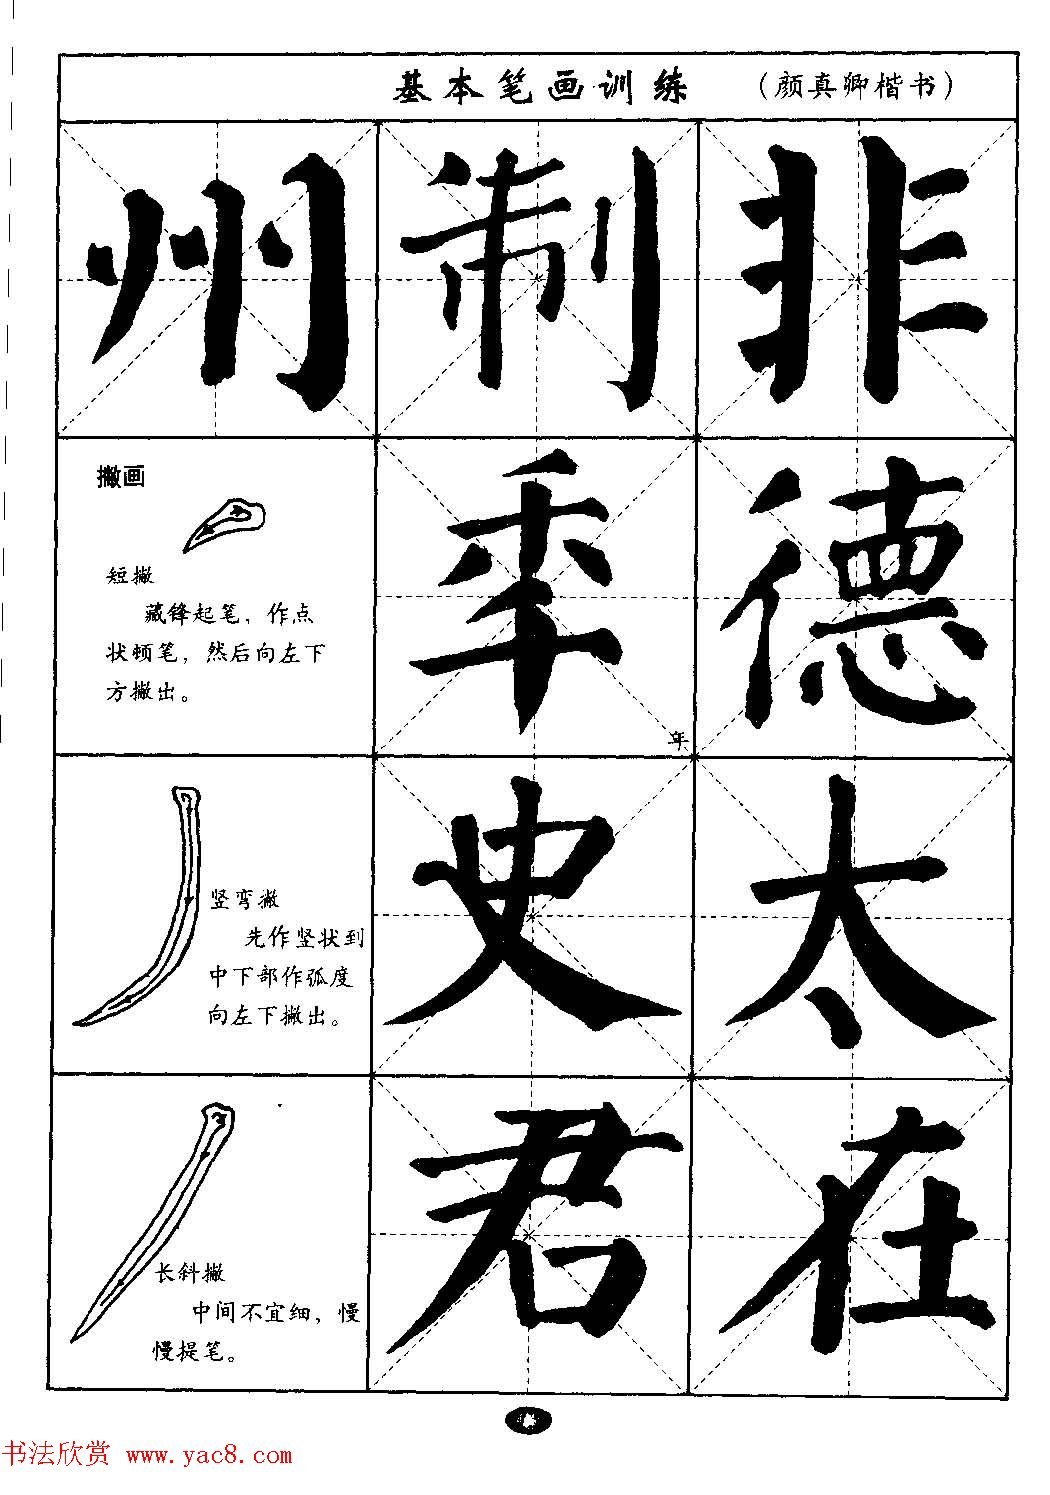 基本笔画训练 (颜真卿楷书)
州 制 非
撇画
短撇
藏锋起笔，作点
状顿笔，然后向左下
方撇出。
季 德
年
竖弯撇
先作竖状到
中下部作弧度
向左下撇出。
史 太
长斜撇
中间不宜细，慢
慢提笔。
君 在
书法欣赏 www.yac8.com